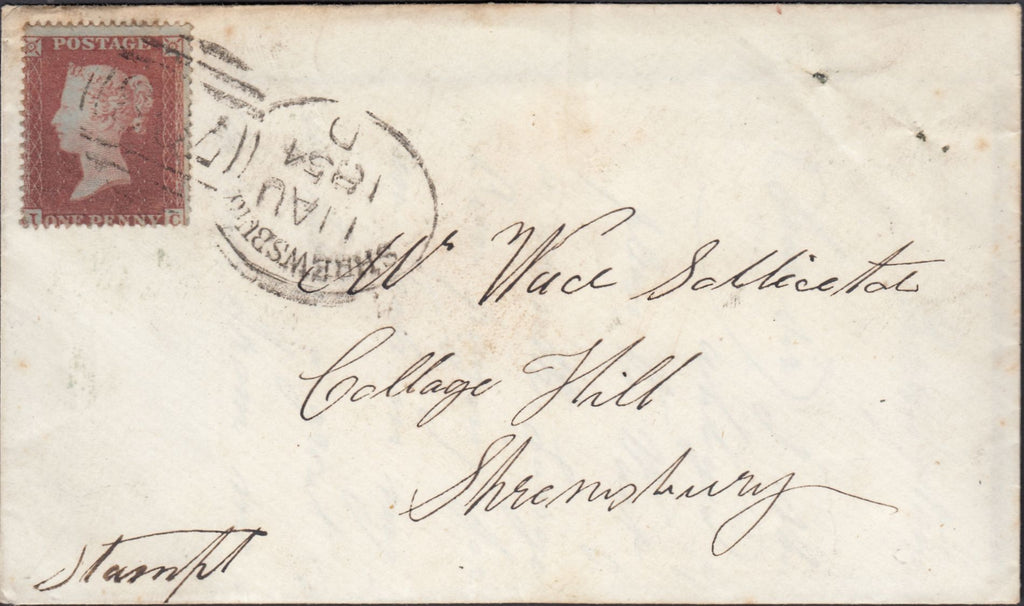 POSTAGE
ONE PENNY
C
1854
11 AU
SHREWSBURY
Mr Wace Sollicetor
Collage Hill
Shrewsbury
Stampt